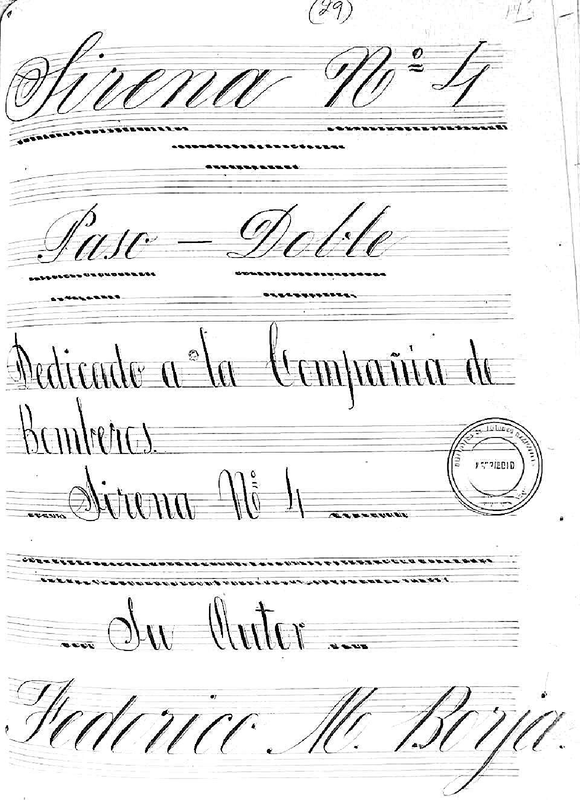 (29)
Sirena Nº 4
Paso - Doble
Dedicado a la Compañia de
Bomberos.
Sirena Nº 4
Su Autor
Federico M. Borja.